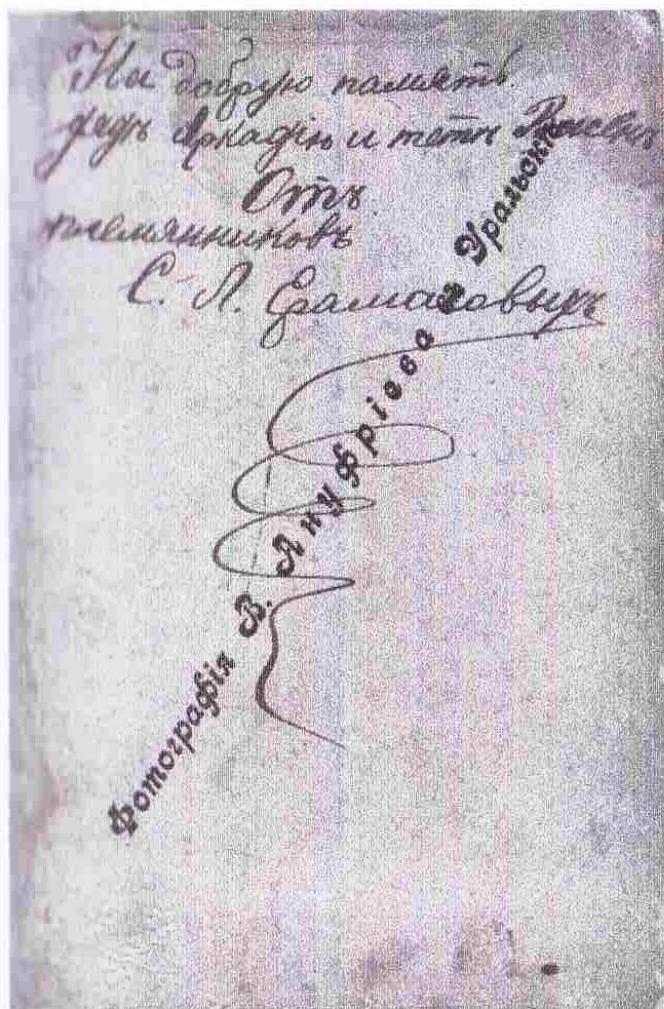 На добрую память
дядѣ Аркадію и тети
Отъ
племянниковъ
С. Л.
Фотографія В. Ануфріева г. Уральскъ